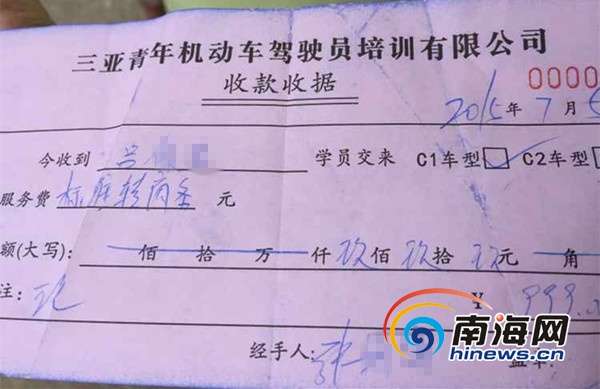 三亚青年机动车驾驶员培训有限公司
收款收据
0000
2015年7月5
今收到 吕 学员交来 C1车型 C2车型
服务费 元
额(大写): 佰 拾 万 仟 玖佰玖拾玖元 角
注:
¥ 999.
经手人: 张
南海网
hinews.cn